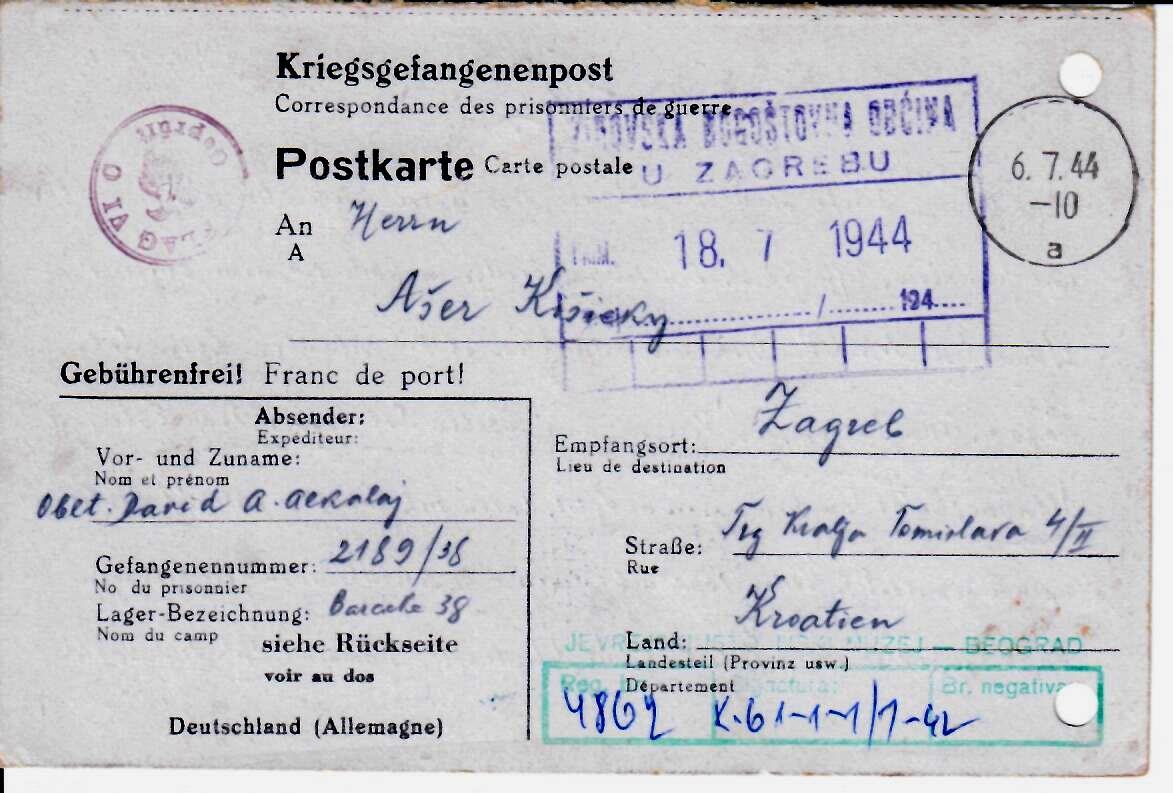 Kriegsgefangenenpost
Correspondance des prisonniers de guerre
Postkarte Carte postale
ŽIDOVSKA BOGOŠTOVNA OBĆINA
U ZAGREBU
18. 7 1944
/ 194
6.7.44
-10
a
Geprüft
O VI
An Herrn
A
Ašer Kišicky
Gebührenfrei! Franc de port!
Absender:
Expéditeur:
Vor- und Zuname:
Nom et prénom
David A. Alkalaj
Gefangenennummer: 2189/38
No du prisonnier
Lager-Bezeichnung: Baracke 38
Nom du camp
siehe Rückseite
voir au dos
Deutschland (Allemagne)
Empfangsort: Zagreb
Lieu de destination
Straße: Trg Kralja Tomislava 4/II
Rue
Kroatien
Land:
Landesteil (Provinz usw.)
Département
MUZEJ — BEOGRAD
Reg. Signatura: Br. negativa
4862 K-61-1-1/1-42